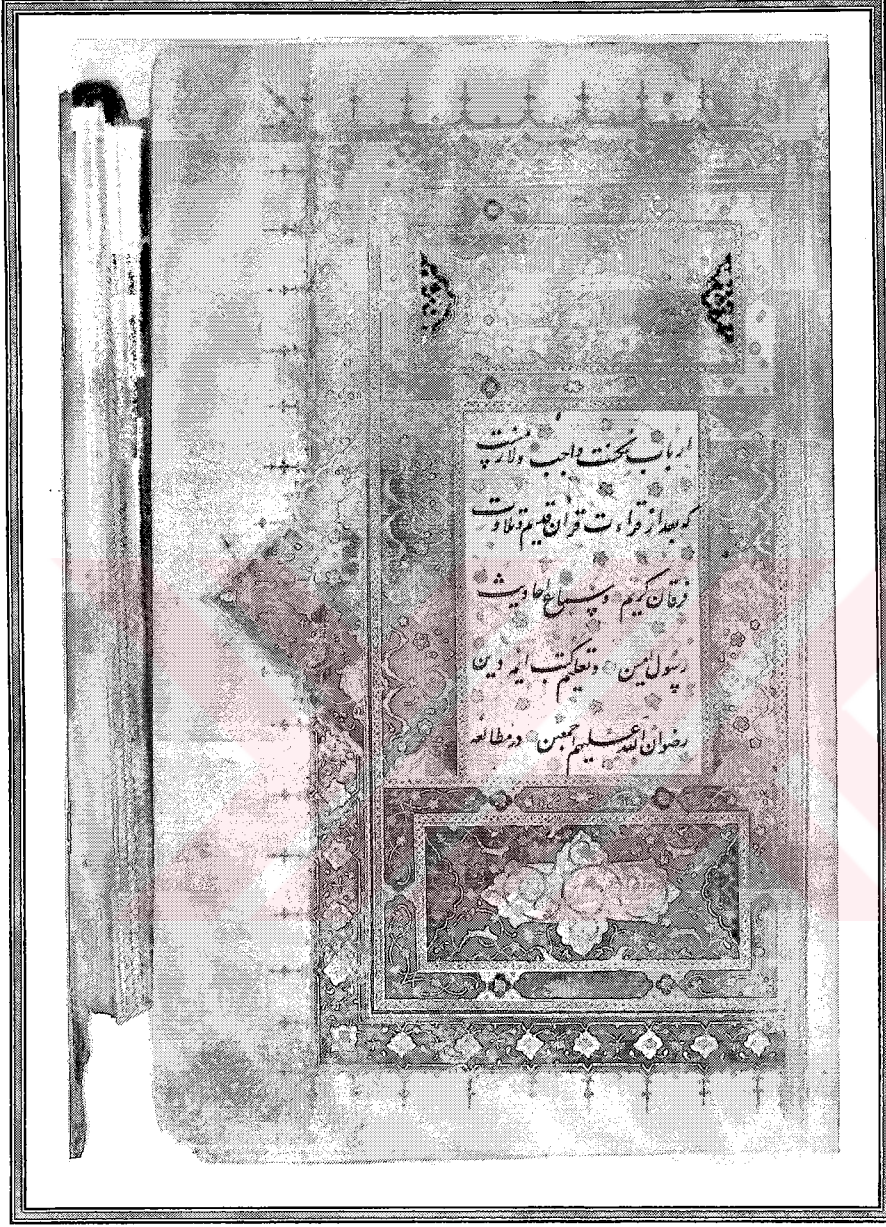 ارباب محنت واجب ولازمست
که بعد از قراءت قرآن قدیم و تلاوت
فرقان کریم و سماع احادیث
رسول امین و تعلیم کتب ائمه دین
رضوان الله علیهم اجمعین در مطالعه